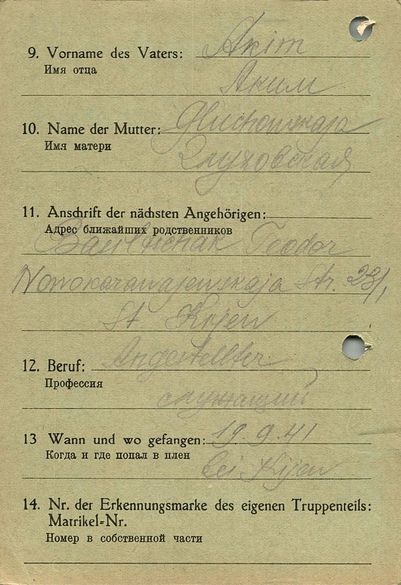 9. Vorname des Vaters: Akim
Имя отца
Аким
10. Name der Mutter: Gluchowskaja
Имя матери
Глуховская
11. Anschrift der nächsten Angehörigen:
Адрес ближайших родственников
Teodor
Str. 23/1
St. Kijew
12. Beruf: Angestellter
Профессия
служащий
13 Wann und wo gefangen: 19.9.41
Когда и где попал в плен
bei Kijew
14. Nr. der Erkennungsmarke des eigenen Truppenteils:
Matrikel-Nr.
Номер в собственной части